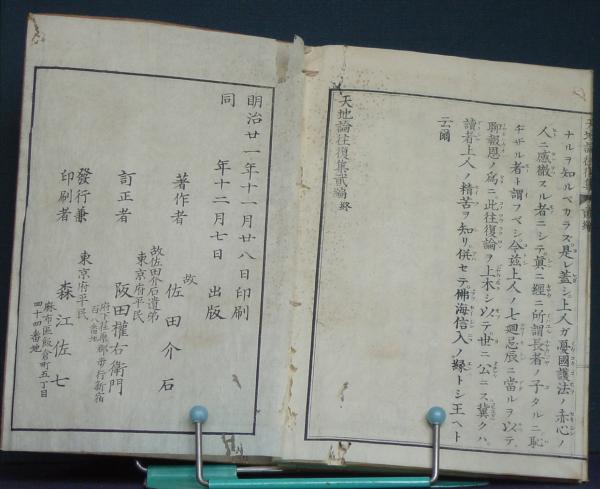 ナルヲ知ルベカラズ是レ蓋シ上人ガ憂國護法ノ赤心ノ
人ニ感徹スル者ニシテ眞ニ經ニ所謂長者ノ子タルニ恥
ヂザル者ト謂フベシ今茲上人ノ七廻忌辰ニ當ルヲ以テ
聊報恩ノ爲ニ此往復論ヲ上木シ以テ世ニ公ニス冀クハ
讀者上人ノ精苦ヲ知リ併セテ佛海信入ノ縁トシ王ヘト
云爾
天地論往復集貳編終
明治廿一年十一月廿八日印刷
同年十二月七日出版
著作者 故 佐田介石
故佐田介石遺弟
東京府平民
訂正者 阪田權右衞門
府下荏原郡
發行兼
印刷者
東京府平民
森江佐七
麻布區飯倉町五丁目
四十四番地